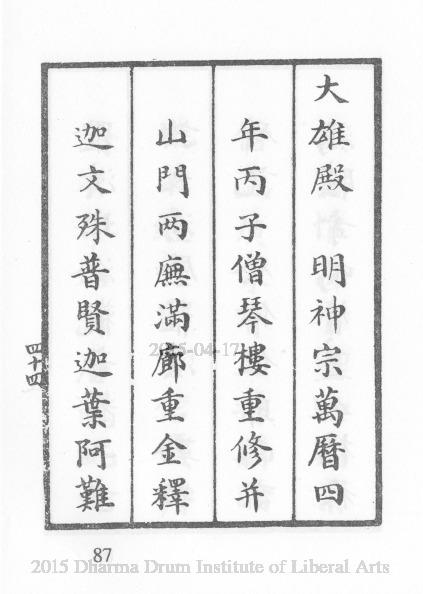 大雄殿　明神宗萬曆四
年丙子僧琴樓重修并
山門两廡滿廊重金釋
迦文殊普賢迦葉阿難
四十四
87
2015-04-17
2015 Dharma Drum Institute of Liberal Arts